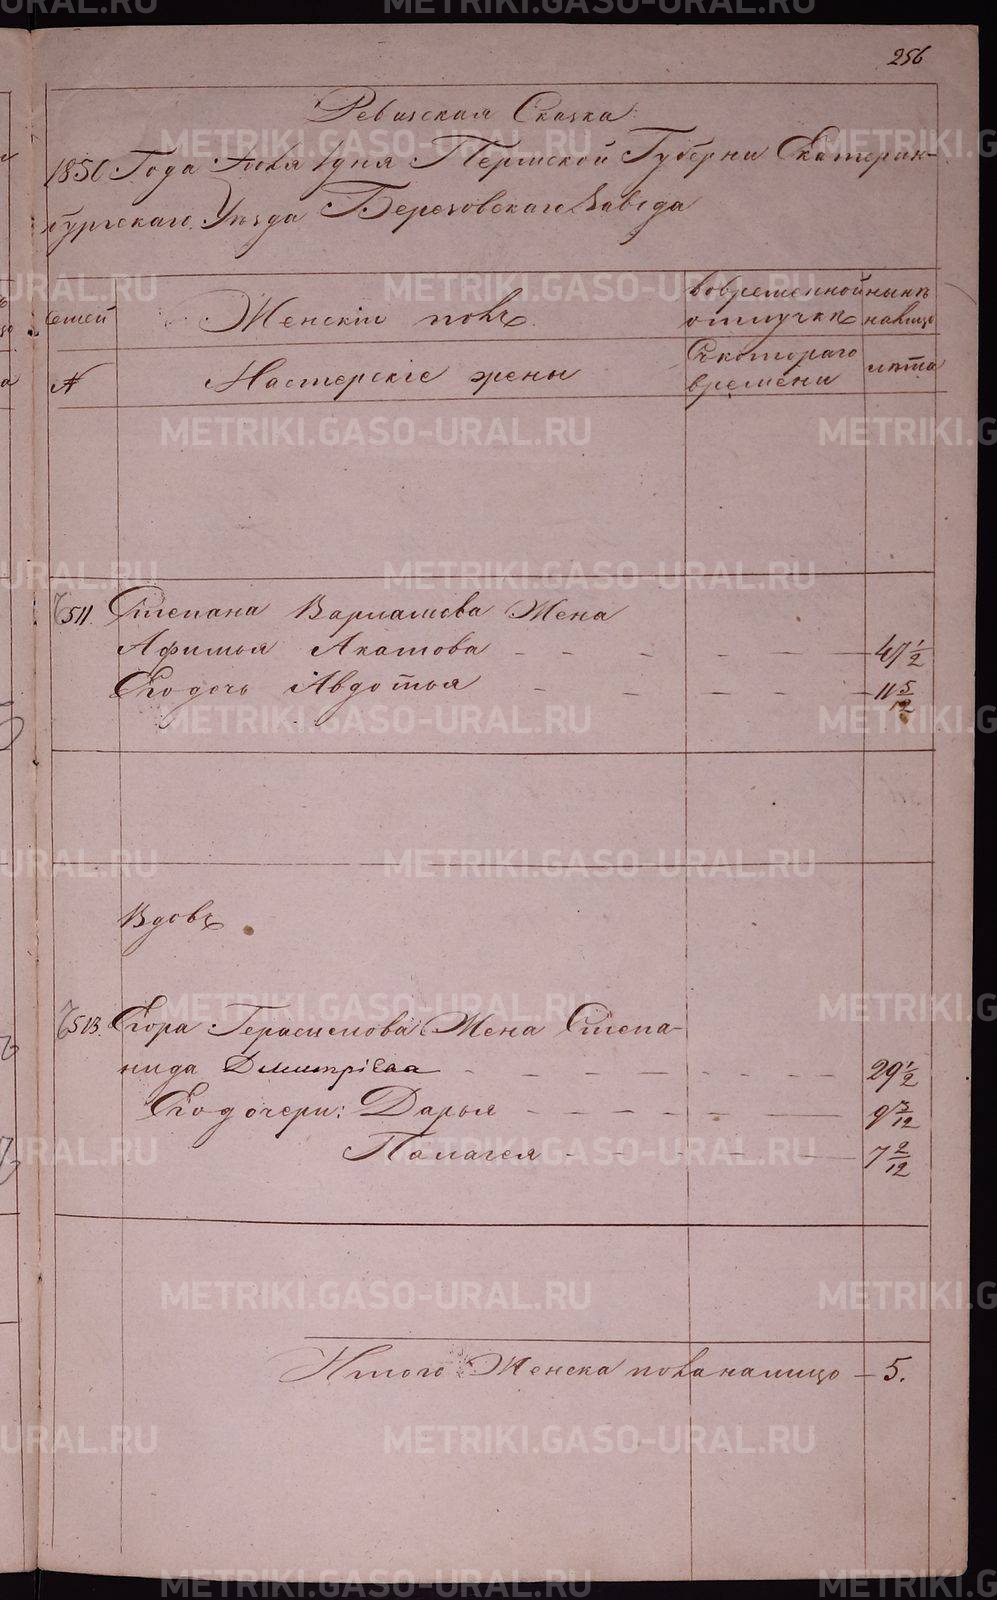 256
Ревизская Сказка
1850 Года Июля 1 дня Пермской Губернии Екатерин-
бургскаго Уезда Березовскаго Завода
семей
Женскій полъ
во временной
отлучке
ныне
налицо
№
Мастерскіе жены
Съ котораго
времени
лета
511. Степана Варламова Жена
Афимья Акатова 47 1/2
Его дочь Авдотья 11 5/12
Вдовы
513. Егора Герасимова Жена Степа-
нида Дмитріева 29 1/2
Его дочери: Дарья 9 3/12
Палагея 7 2/12
Итого Женска пола налицо 5.
METRIKI.GASO-URAL.RU